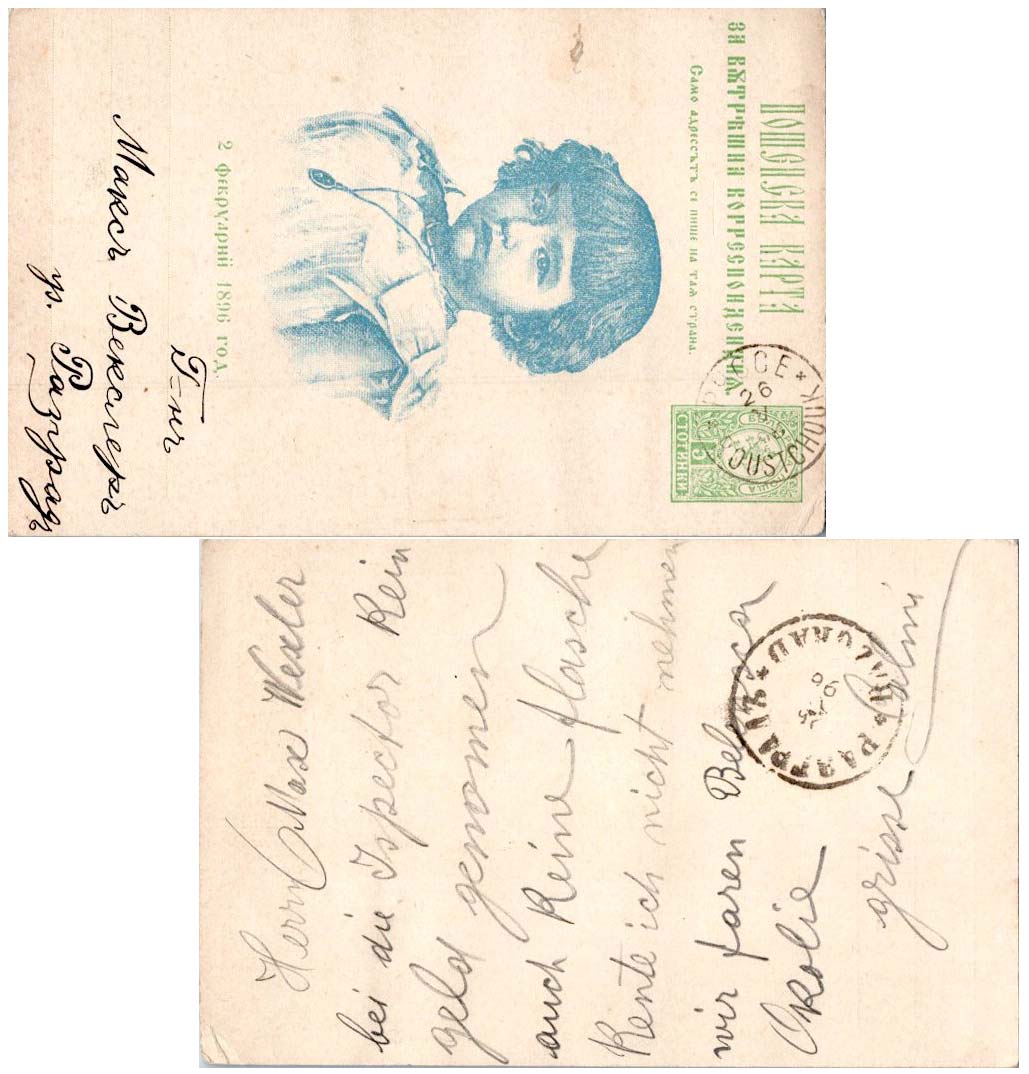 ПОЩЕНСКА КАРТА
ЗА ВѪТРѢШНА КОРРЕСПОНДЕНЦИЯ
Само адрессътъ се пише на таѭ страна.
2 Февруарий 1896 год.
5
СТОТИНКИ
26
Г-нъ
Максъ Векслеръ
гр. Разградъ
Herrn Max Wexler
bei die Ispector Kein
geld genomen
auch Keine flasche
Kente ich nicht nehmen
wir faren
Okolie
grisse
РАЗГРАДЪ * RAZGRAD *
96